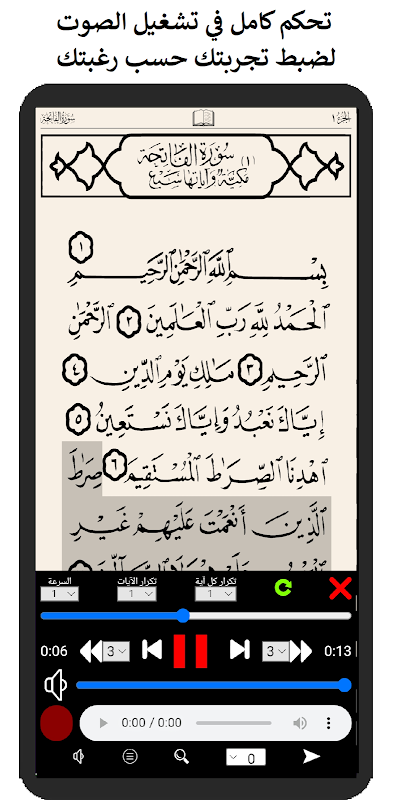 تحكم كامل في تشغيل الصوت
لضبط تجربتك حسب رغبتك
الجزء ١
سورة الفاتحة
سُورَةُ الفَاتِحَة (١)
مكيّة وآياتها سبع
بِسْمِ اللَّهِ الرَّحْمَٰنِ الرَّحِيمِ ١
الْحَمْدُ لِلَّهِ رَبِّ الْعَالَمِينَ ٢ الرَّحْمَٰنِ
الرَّحِيمِ ٣ مَلِكِ يَوْمِ الدِّينِ ٤
إِيَّاكَ نَعْبُدُ وَإِيَّاكَ نَسْتَعِينُ ٥
اهْدِنَا الصِّرَاطَ الْمُسْتَقِيمَ ٦ صِرَاطَ
الَّذِينَ أَنْعَمْتَ عَلَيْهِمْ غَيْرِ
تكرار كل آية
تكرار الآيات
السرعة
1
1
1
0:06
3
3
0:13
0:00 / 0:00
0